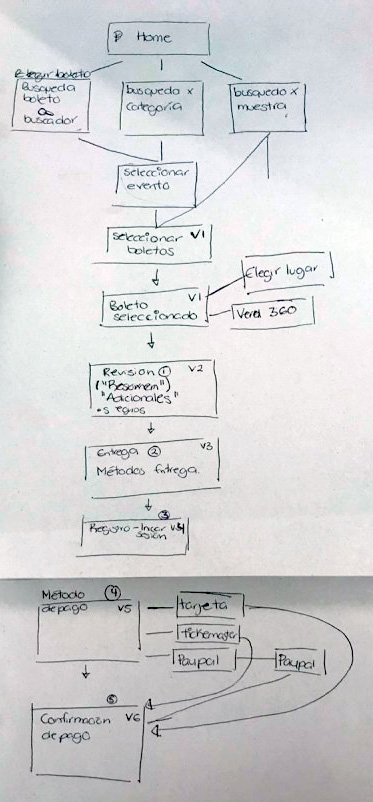 P Home
Elegir boleto
Búsqueda
boleto
buscador
busquedo x
categoría
busquedo x
muestra
seleccionar
evento
seleccionar V1
boletos
Boleto V1
seleccionado
Elegir lugar
Vered 360
Revision ① V2
("Resumen")
"Adicionales"
Entrega ② V3
Métodos Entrega
③
Registro - Iniciar V4
sesión
Método ④
de pago V5
tarjeta
ticketmaster
Paypal
Paypal
⑤
Confirmación V6
de pago